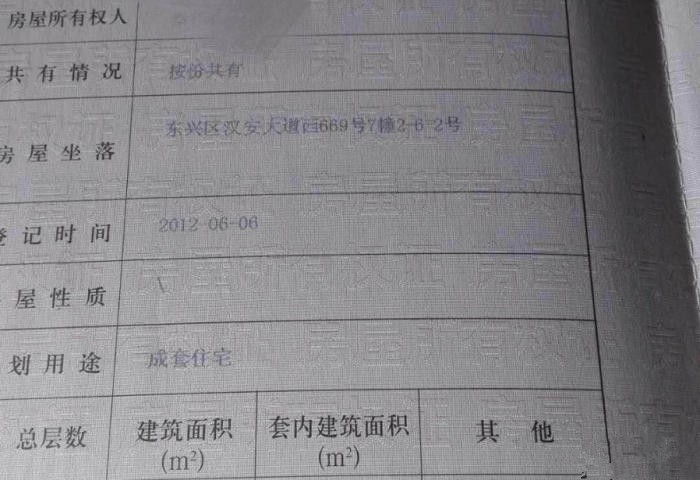 房屋所有权人
共有情况 按份共有
房屋坐落 东兴区汉安大道西669号7幢2-6-2号
登记时间 2012-06-06
屋性质 \
划用途 成套住宅
总层数 建筑面积 (m²) 套内建筑面积 (m²) 其他